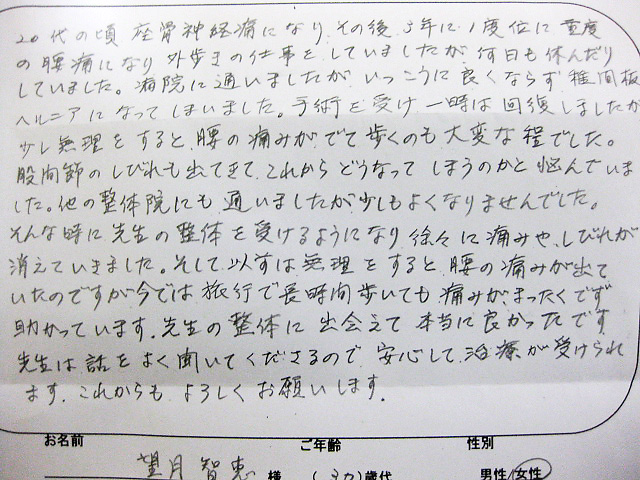 20代の頃 座骨神経痛になり、その後、3年に1度位に重度
の腰痛になり 外歩きの仕事をしていましたが 何日も休んだり
していました。病院に通いましたが いっこうに良くならず 椎間板
ヘルニアになってしまいました。手術を受け 一時は回復しましたが
少し無理をすると、腰の痛みがでて歩くのも大変な程でした。
股間節のしびれも出てきて、これからどうなってしまうのかと悩んでいま
した。他の整体院にも通いましたが少しもよくなりませんでした。
そんな時に先生の整体を受けるようになり 徐々に痛みや、しびれが
消えていきました。そして以前は無理をすると、腰の痛みが出て
いたのですが今では旅行で長時間歩いても痛みがまったくでず
助かっています。先生の整体に出会えて本当に良かったです
先生は話をよく聞いてくださるので、安心して治療が受けられ
ます。これからもよろしくお願いします。
お名前 ご年齢 性別
望月 智恵 様 (30)歳代 男性/女性